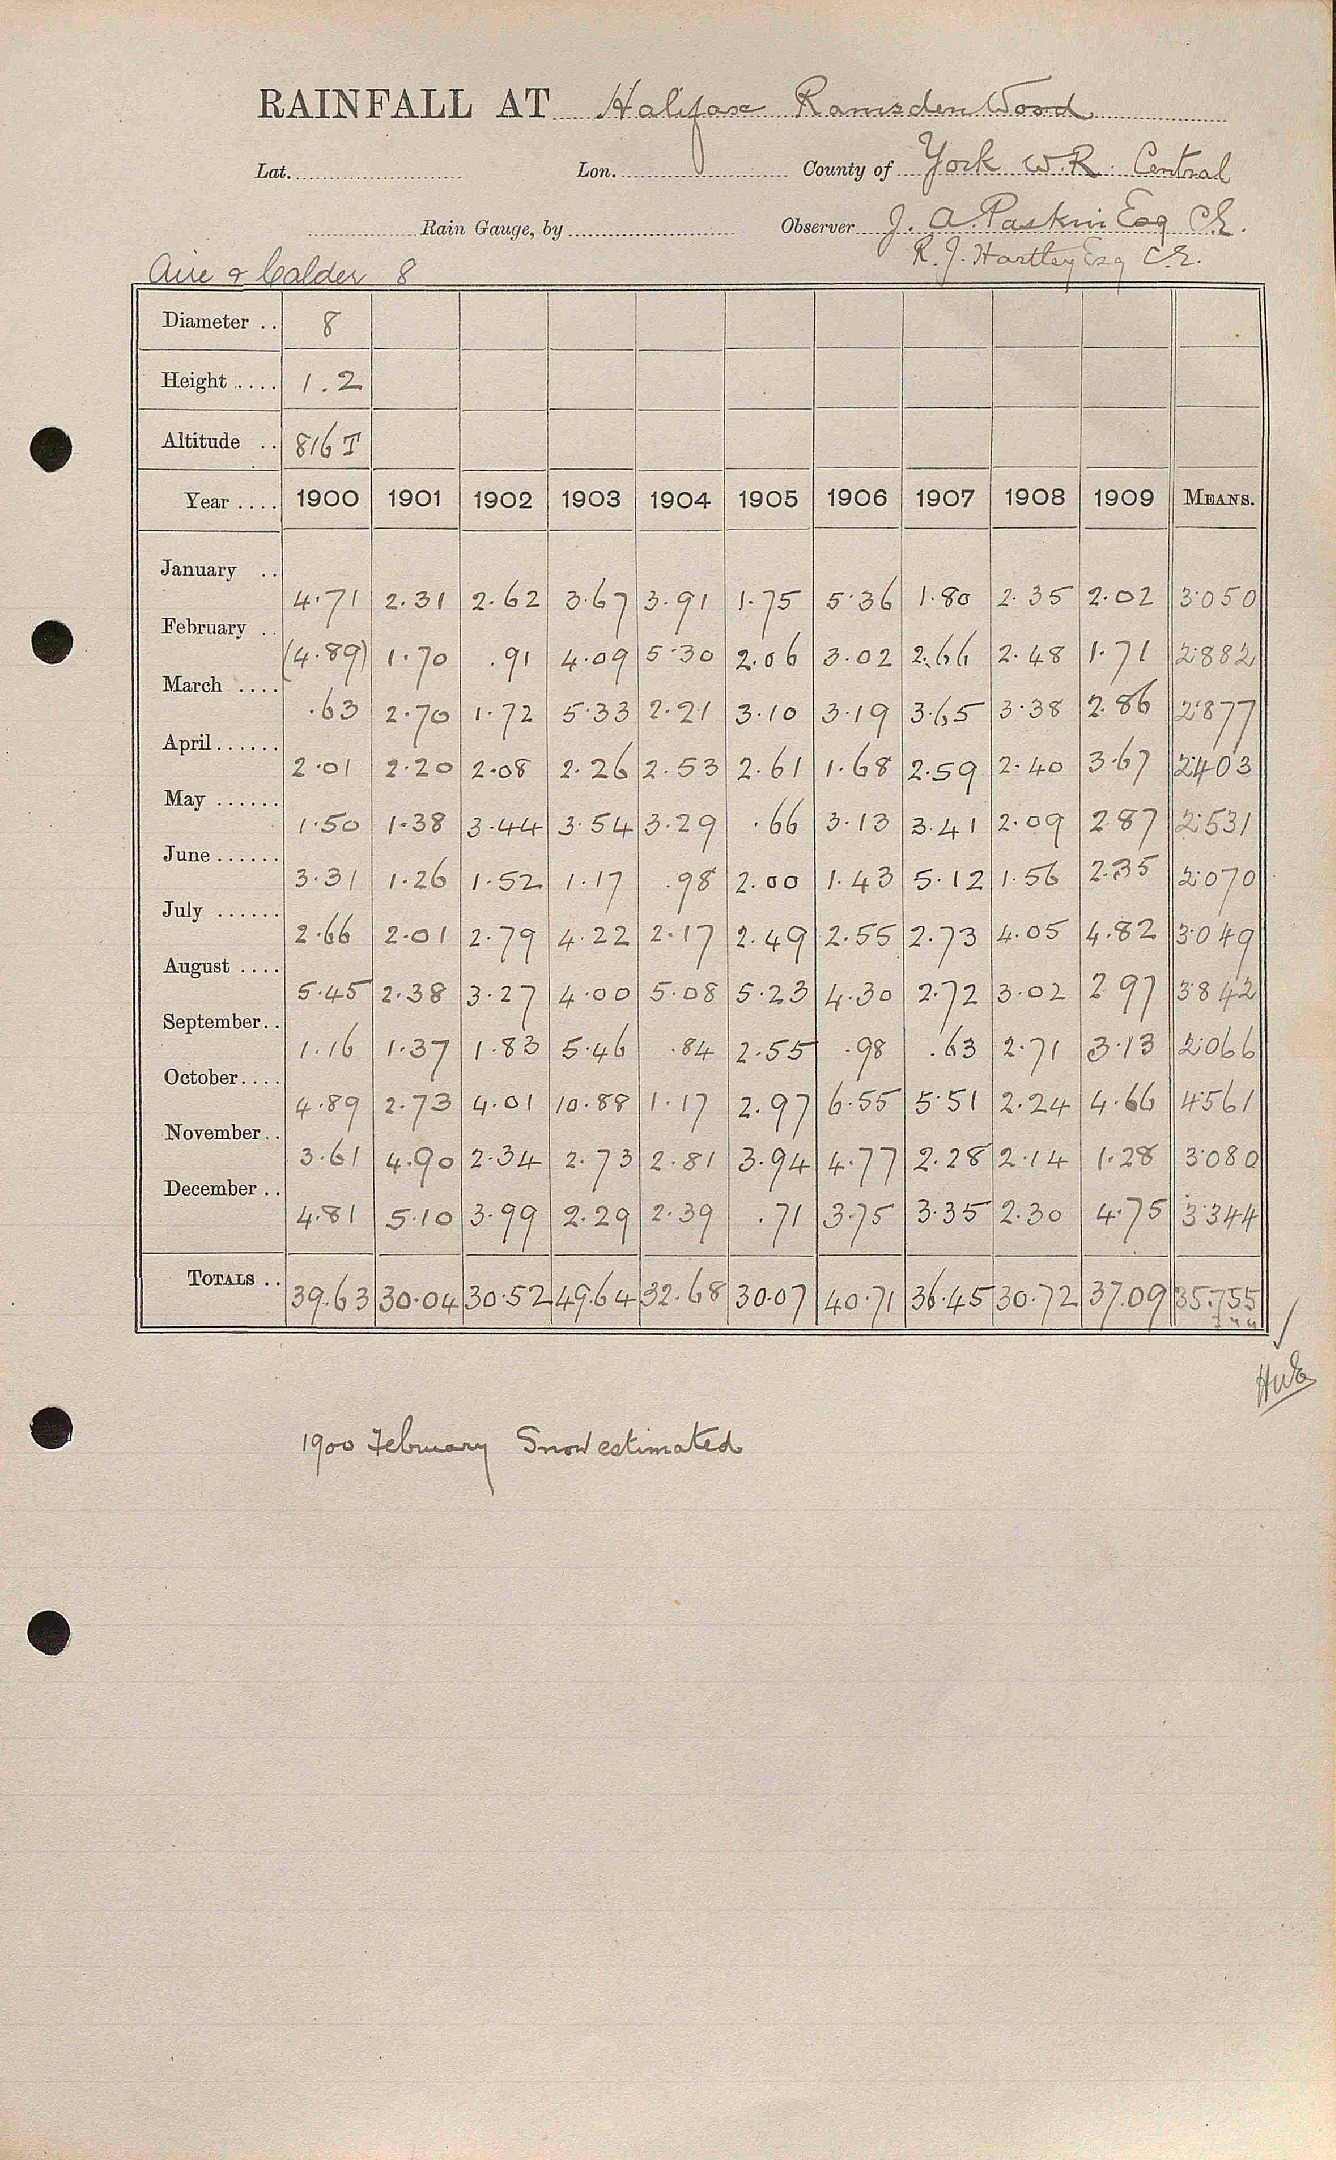 RAINFALL AT Halifax Ramsden Wood
Lat. Lon. County of York W.R. Central
Rain Gauge, by Observer J. A. Paskin Esq C.E.
R. J. Hartley Esq C.E.
Aire & Calder 8
Diameter .. 8
Height ..... 1.2
Altitude .. 816 T
Year .... 1900 1901 1902 1903 1904 1905 1906 1907 1908 1909 MEANS.
January .. 4.71 2.31 2.62 3.67 3.91 1.75 5.36 1.80 2.35 2.02 3.050
February .. (4.89) 1.70 .91 4.09 5.30 2.06 3.02 2.66 2.48 1.71 2.882
March .... .63 2.70 1.72 5.33 2.21 3.10 3.19 3.65 3.38 2.86 2.877
April ...... 2.01 2.20 2.08 2.26 2.53 2.61 1.68 2.59 2.40 3.67 2.403
May ...... 1.50 1.38 3.44 3.54 3.29 .66 3.13 3.41 2.09 2.87 2.531
June ...... 3.31 1.26 1.52 1.17 .98 2.00 1.43 5.12 1.56 2.35 2.070
July ...... 2.66 2.01 2.79 4.22 2.17 2.49 2.55 2.73 4.05 4.82 3.049
August .... 5.45 2.38 3.27 4.00 5.08 5.23 4.30 2.72 3.02 2.97 3.842
September.. 1.16 1.37 1.83 5.46 .84 2.55 .98 .63 2.71 3.13 2.066
October.... 4.89 2.73 4.01 10.88 1.17 2.97 6.55 5.51 2.24 4.66 4.561
November.. 3.61 4.90 2.34 2.73 2.81 3.94 4.77 2.28 2.14 1.28 3.080
December .. 4.81 5.10 3.99 2.29 2.39 .71 3.75 3.35 2.30 4.75 3.344
TOTALS .. 39.63 30.04 30.52 49.64 32.68 30.07 40.71 36.45 30.72 37.09 35.755
1900 February Snow estimated